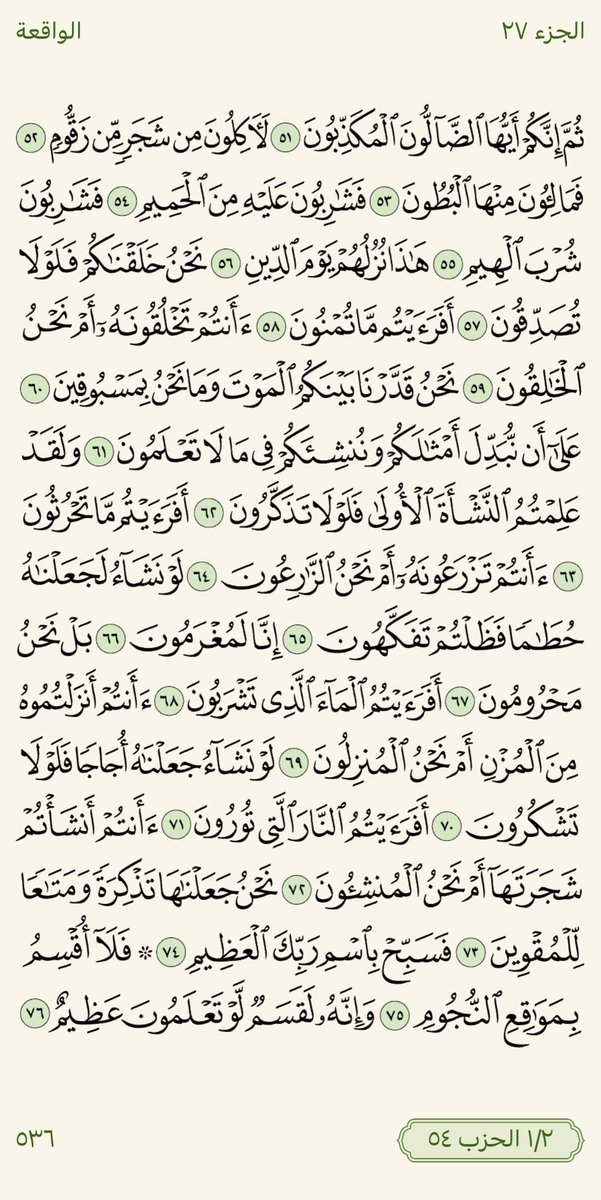 الجزء ٢٧
الواقعة
ثُمَّ إِنَّكُمْ أَيُّهَا ٱلضَّآلُّونَ ٱلْمُكَذِّبُونَ ٥١ لَـَٔاكِلُونَ مِن شَجَرٍ مِّن زَقُّومٍ ٥٢
فَمَالِـُٔونَ مِنْهَا ٱلْبُطُونَ ٥٣ فَشَـٰرِبُونَ عَلَيْهِ مِنَ ٱلْحَمِيمِ ٥٤ فَشَـٰرِبُونَ
شُرْبَ ٱلْهِيمِ ٥٥ هَـٰذَا نُزُلُهُمْ يَوْمَ ٱلدِّينِ ٥٦ نَحْنُ خَلَقْنَـٰكُمْ فَلَوْلَا
تُصَدِّقُونَ ٥٧ أَفَرَءَيْتُم مَّا تُمْنُونَ ٥٨ ءَأَنتُمْ تَخْلُقُونَهُۥٓ أَمْ نَحْنُ
ٱلْخَـٰلِقُونَ ٥٩ نَحْنُ قَدَّرْنَا بَيْنَكُمُ ٱلْمَوْتَ وَمَا نَحْنُ بِمَسْبُوقِينَ ٦٠
عَلَىٰٓ أَن نُّبَدِّلَ أَمْثَـٰلَكُمْ وَنُنشِئَكُمْ فِى مَا لَا تَعْلَمُونَ ٦١ وَلَقَدْ
عَلِمْتُمُ ٱلنَّشْأَةَ ٱلْأُولَىٰ فَلَوْلَا تَذَكَّرُونَ ٦٢ أَفَرَءَيْتُم مَّا تَحْرُثُونَ
٦٣ ءَأَنتُمْ تَزْرَعُونَهُۥٓ أَمْ نَحْنُ ٱلزَّٰرِعُونَ ٦٤ لَوْ نَشَآءُ لَجَعَلْنَـٰهُ
حُطَـٰمًا فَظَلْتُمْ تَفَكَّهُونَ ٦٥ إِنَّا لَمُغْرَمُونَ ٦٦ بَلْ نَحْنُ
مَحْرُومُونَ ٦٧ أَفَرَءَيْتُمُ ٱلْمَآءَ ٱلَّذِى تَشْرَبُونَ ٦٨ ءَأَنتُمْ أَنزَلْتُمُوهُ
مِنَ ٱلْمُزْنِ أَمْ نَحْنُ ٱلْمُنزِلُونَ ٦٩ لَوْ نَشَآءُ جَعَلْنَـٰهُ أُجَاجًا فَلَوْلَا
تَشْكُرُونَ ٧٠ أَفَرَءَيْتُمُ ٱلنَّارَ ٱلَّتِى تُورُونَ ٧١ ءَأَنتُمْ أَنشَأْتُمْ
شَجَرَتَهَآ أَمْ نَحْنُ ٱلْمُنشِـُٔونَ ٧٢ نَحْنُ جَعَلْنَـٰهَا تَذْكِرَةً وَمَتَـٰعًا
لِّلْمُقْوِينَ ٧٣ فَسَبِّحْ بِٱسْمِ رَبِّكَ ٱلْعَظِيمِ ٧٤ ۞ فَلَآ أُقْسِمُ
بِمَوَٰقِعِ ٱلنُّجُومِ ٧٥ وَإِنَّهُۥ لَقَسَمٌ لَّوْ تَعْلَمُونَ عَظِيمٌ ٧٦
١/٢ الحزب ٥٤
٥٣٦